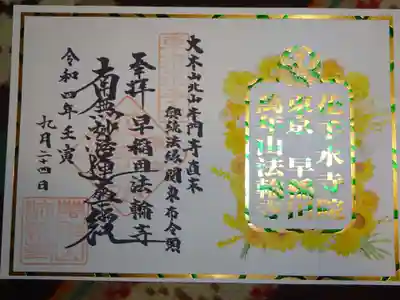 花手水寺院
東京 早稲田
萬年山法輪寺
大本山北山本門寺直末
無縫法縁関東布令頭
奉拝 早稲田法輪寺
南無妙法蓮華経
令和四年 壬寅
九月二十四日